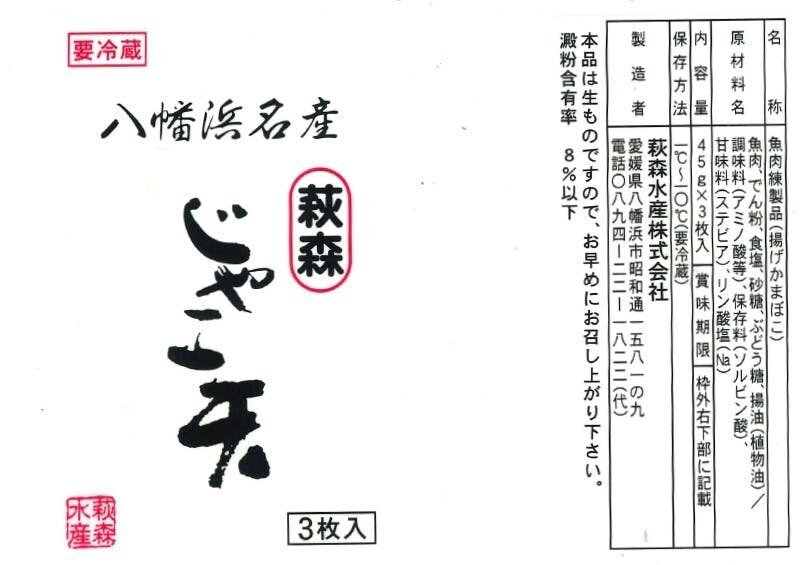 要冷蔵
八幡浜名産
萩森
じゃこ天
萩森水産
3枚入
名称
魚肉練製品(揚げかまぼこ)
原材料名
魚肉、でん粉、食塩、砂糖、ぶどう糖、揚油(植物油)/
調味料(アミノ酸等)、保存料(ソルビン酸)、
甘味料(ステビア)、リン酸塩(Na)
内容量
45g×3枚入
賞味期限
枠外右下部に記載
保存方法
一℃~一〇℃(要冷蔵)
製造者
萩森水産株式会社
愛媛県八幡浜市昭和通一五八一の九
電話〇八九四ー二二ー一八二二(代)
本品は生ものですので、お早めにお召し上がり下さい。
澱粉含有率 8%以下